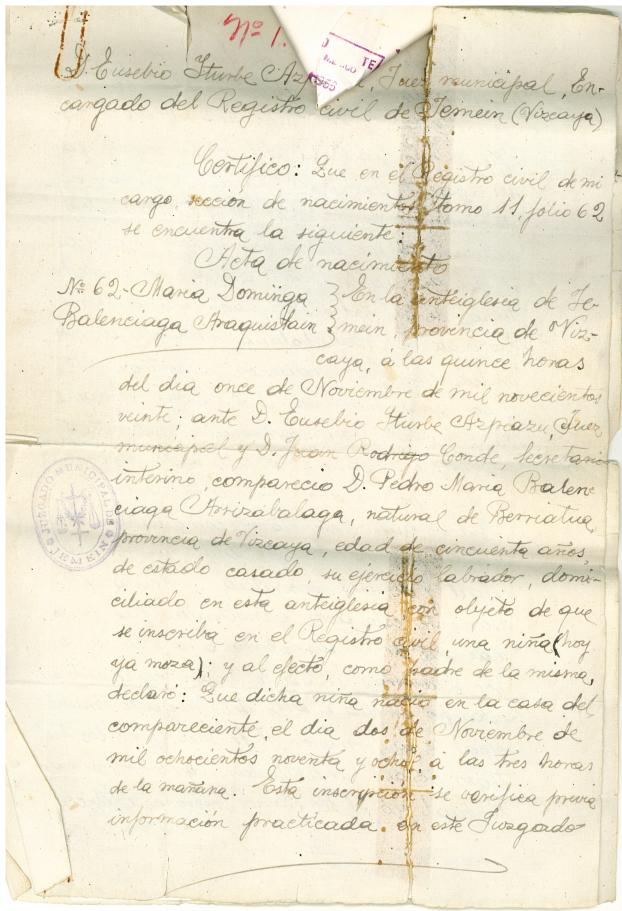 Nº 1.
TE
MEXICO
D. Eusebio Iturbe Azpiazu, Juez municipal, En-
cargado del Registro civil de Jemein (Vizcaya)
Certifico: Que en el Registro civil de mi
cargo, sección de nacimientos, tomo 11, folio 62
se encuentra la siguiente:
Acta de nacimiento
Nº 62 - Maria Dominga
Balenciaga Araquistain
En la anteiglesia de Je-
mein, provincia de Viz-
caya, á las quince horas
del dia once de Noviembre de mil novecientos
veinte; ante D. Eusebio Iturbe Azpiazu, Juez
municipal y D. Juan Rodrigo Conde Secretario
interino, compareció D. Pedro Maria Balen-
ciaga Arrizabalaga, natural de Berriatua,
provincia de Vizcaya, edad de cincuenta años,
de estado casado, su ejercicio labrador, domi-
ciliado en esta anteiglesia con objeto de que
se inscriba en el Registro civil, una niña (hoy
ya moza); y al efecto, como padre de la misma,
declaró: Que dicha niña nació en la casa del
compareciente, el dia dos de Noviembre de
mil ochocientos noventa y ocho, á las tres horas
de la mañana. Esta inscripción se verifica previa
información practicada en este Juzgado
JUZGADO MUNICIPAL DE
JEMEIN